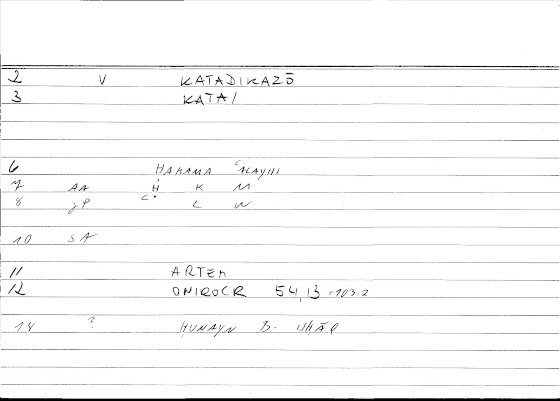 2 V KATADIKAZŌ
3 KATA/
6 ḤAKAMA ʿALAYHI
7 AA Ḥ K M
8 gP C L W
10 SA
11 ARTEM
12 ONIROCR 54,13 =103.2
14 ? ḤUNAYN B. ISḤĀQ